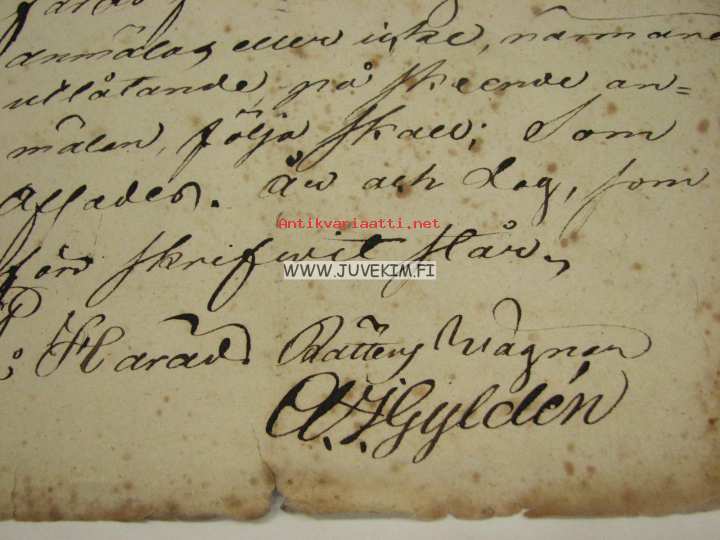 anmälas eller icke, närmare
utlåtande, på skeende an=
mälan, följa skall; Som
Afsades. År och dag, som
Antikvariaatti.net
för skrifwit står,
WWW.JUVEKIM.FI
Härads Rättens Wägnar
Gyldén